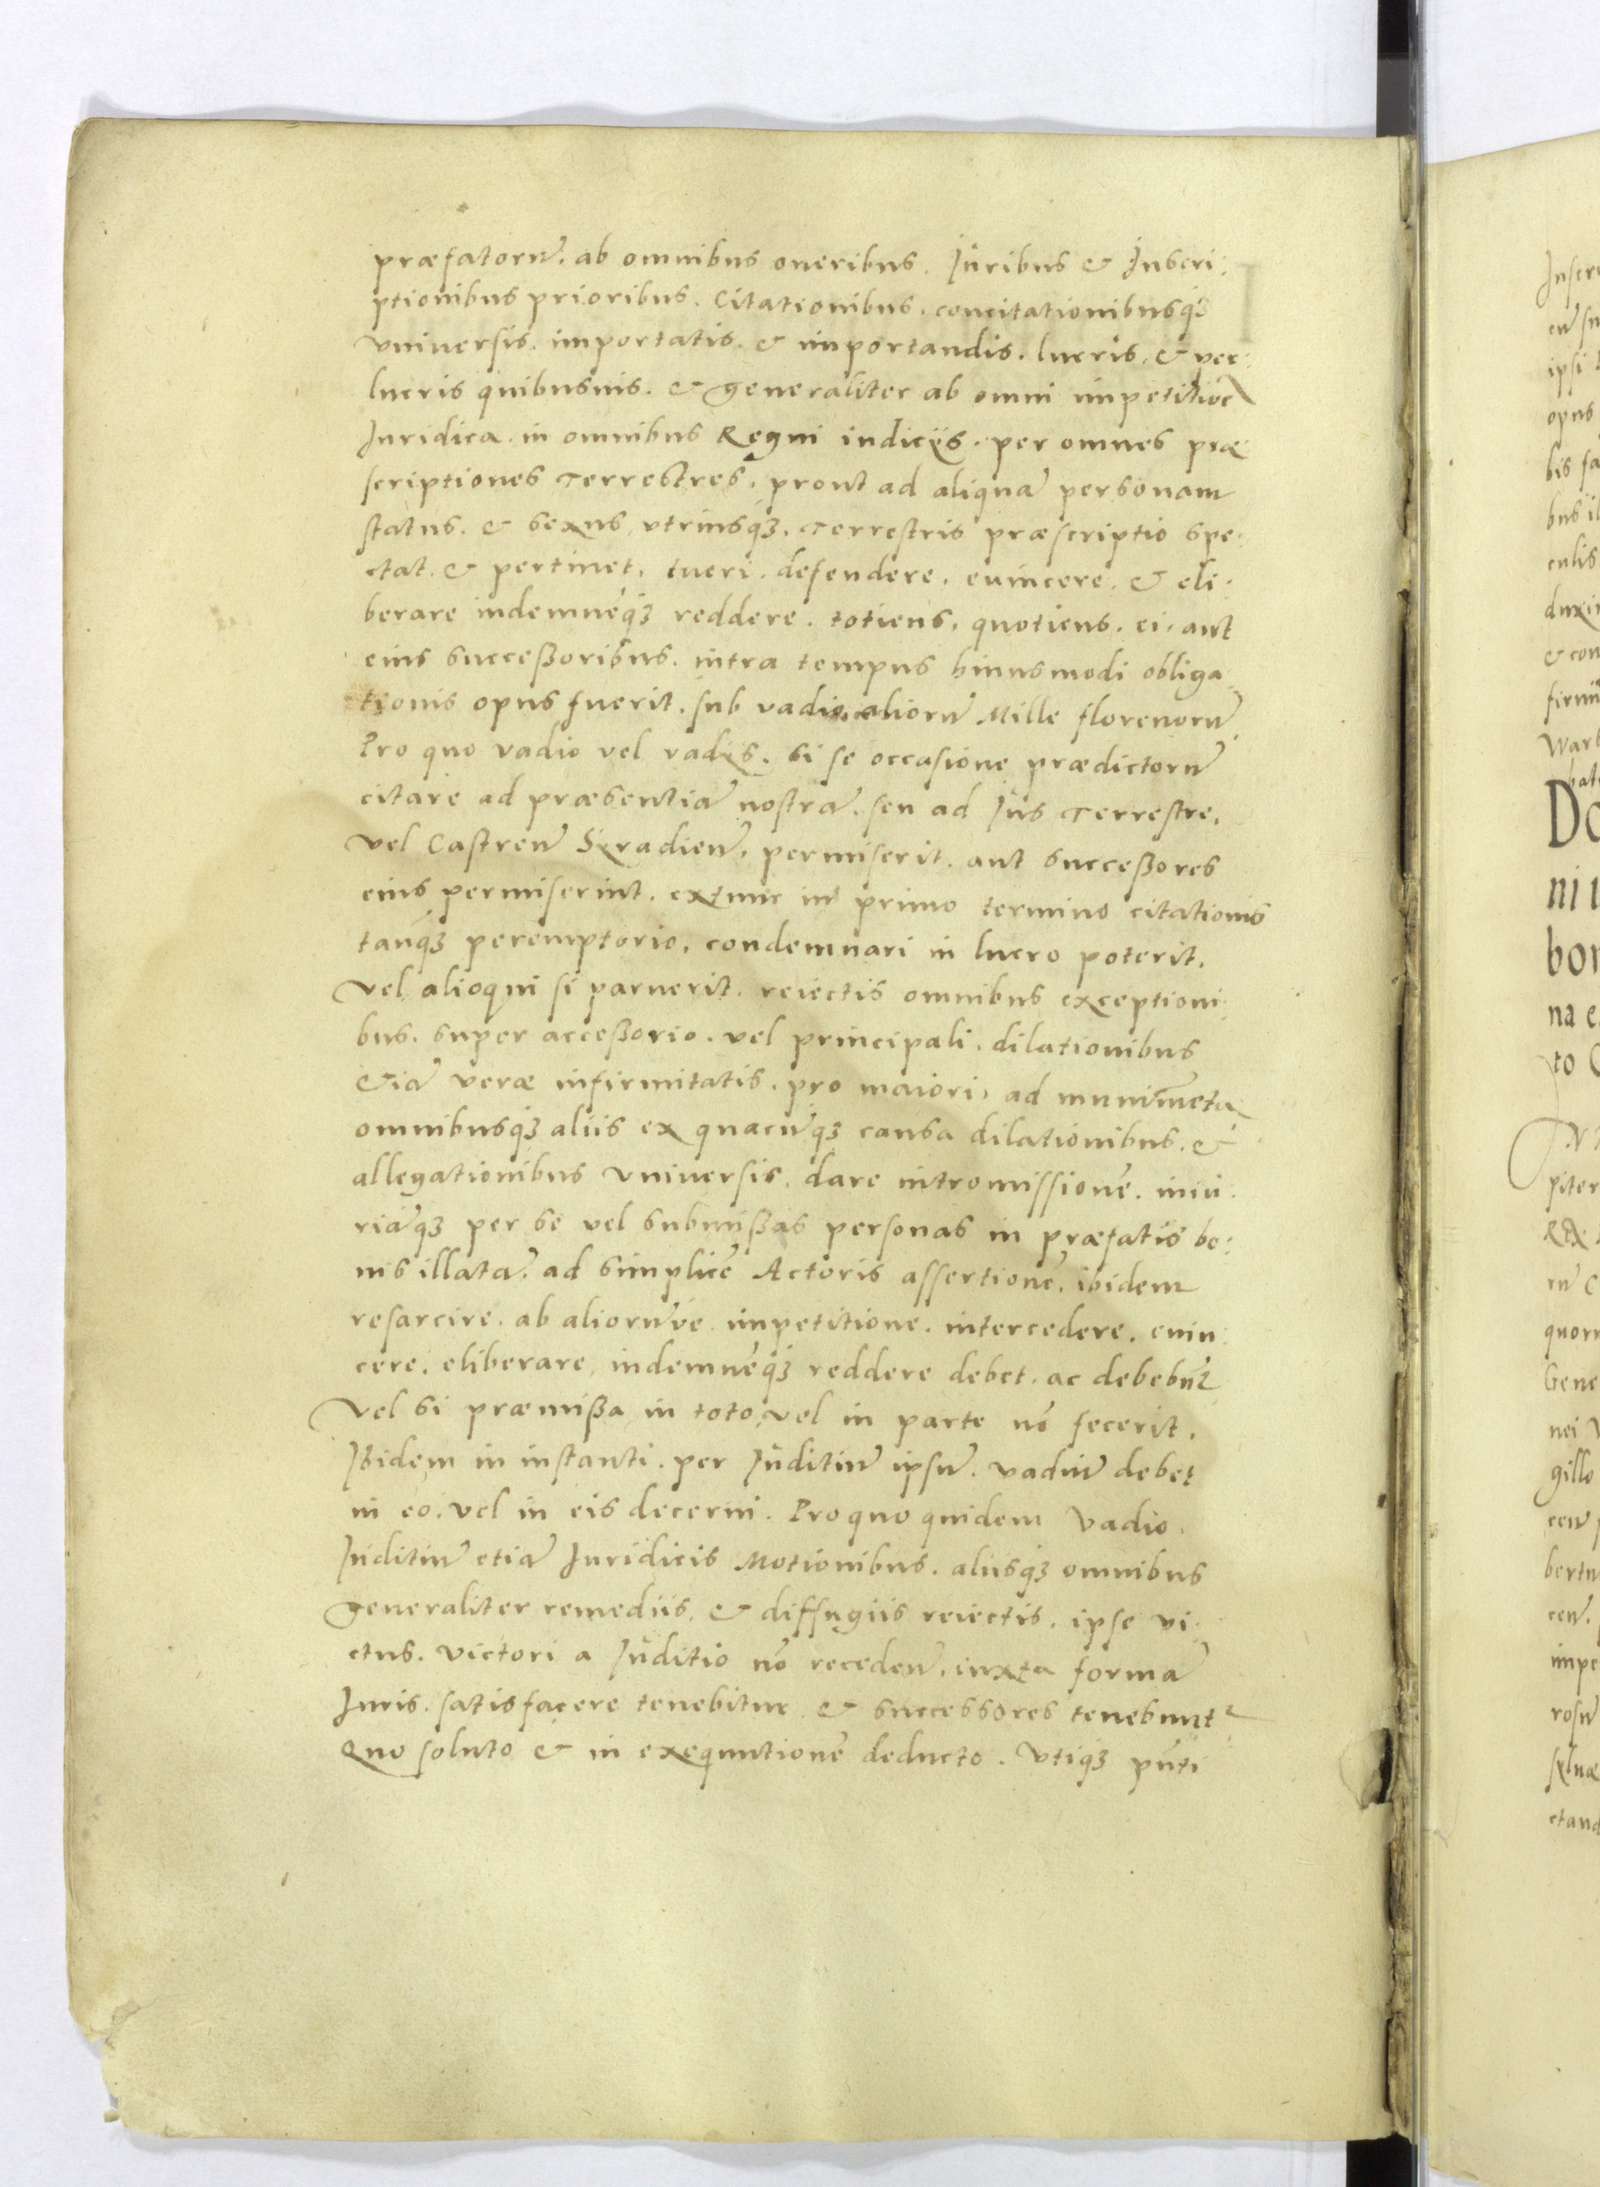 præfatorũ. ab omnibus oneribus. Iuribus & Inscri:
ptionibus prioribus. Citationibus. concitationibusq́ꝫ
vniversis. importatis. & importandis. lucris. & per:
lucris quibusuis. & generaliter ab omni impetitiõe
Iuridica. in omnibus Regni iudicijs. per omnes præ
scriptiones Terrestres, prout ad aliquã personam
status. & sexus vtriusq́ꝫ. Terrestris præscriptio spe:
ctat. & pertinet, tueri. defendere. euincere. & eli:
berare indemnẽq́ꝫ reddere. totiens, quotiens. ei. aut
eius successoribus. intra tempus huiusmodi obliga
tionis opus fuerit. sub vadio. aliorũ Mille florenorũ
Pro quo vadio vel vadijs. si se occasione prædictorũ
citare ad præsentiã nostrã. seu ad Ius Terrestre,
vel Castren̄ Siradien̄, permiserit. aut successores
eius permiserint. extunc in primo termino citationis
tanq́ꝫ peremptorio, condemnari in lucro poterit,
vel alioqui si paruerit. reiectis omnibus exceptioni:
bus. super accessorio. vel principali. dilationibus
etiã veræ infirmitatis. pro maiori, ad munimẽta
omnibusq́ꝫ aliis ex quacũq́ꝫ causa dilationibus. &
allegationibus vniversis, dare intromissionẽ. iniu:
riãq́ꝫ per se vel submissas personas in præfatis bo:
nis illatã. ad simplicẽ Actoris assertionẽ, ibidem
resarcire. ab aliorũve impetitione. intercedere. euin:
cere. eliberare, indemnẽq́ꝫ reddere debet. ac debebũt
Vel si præmissa in toto, vel in parte nõ fecerit.
Ibidem in instanti. per Iuditiũ ipsũ. vadiũ debet
in eo. vel in eis decerni. Pro quo quidem vadio.
Iuditiũ etiã Iuridicis Motionibus. aliisq́ꝫ omnibus
generaliter remediis. & diffugiis reiectis. ipse vi:
ctus. victori a Iuditio nõ receden̄. iuxta formã
Iuris. satisfacere tenebitur & successores tenebunt͛
Quo soluto & in exequutionẽ deducto. vtiq́ꝫ pñti